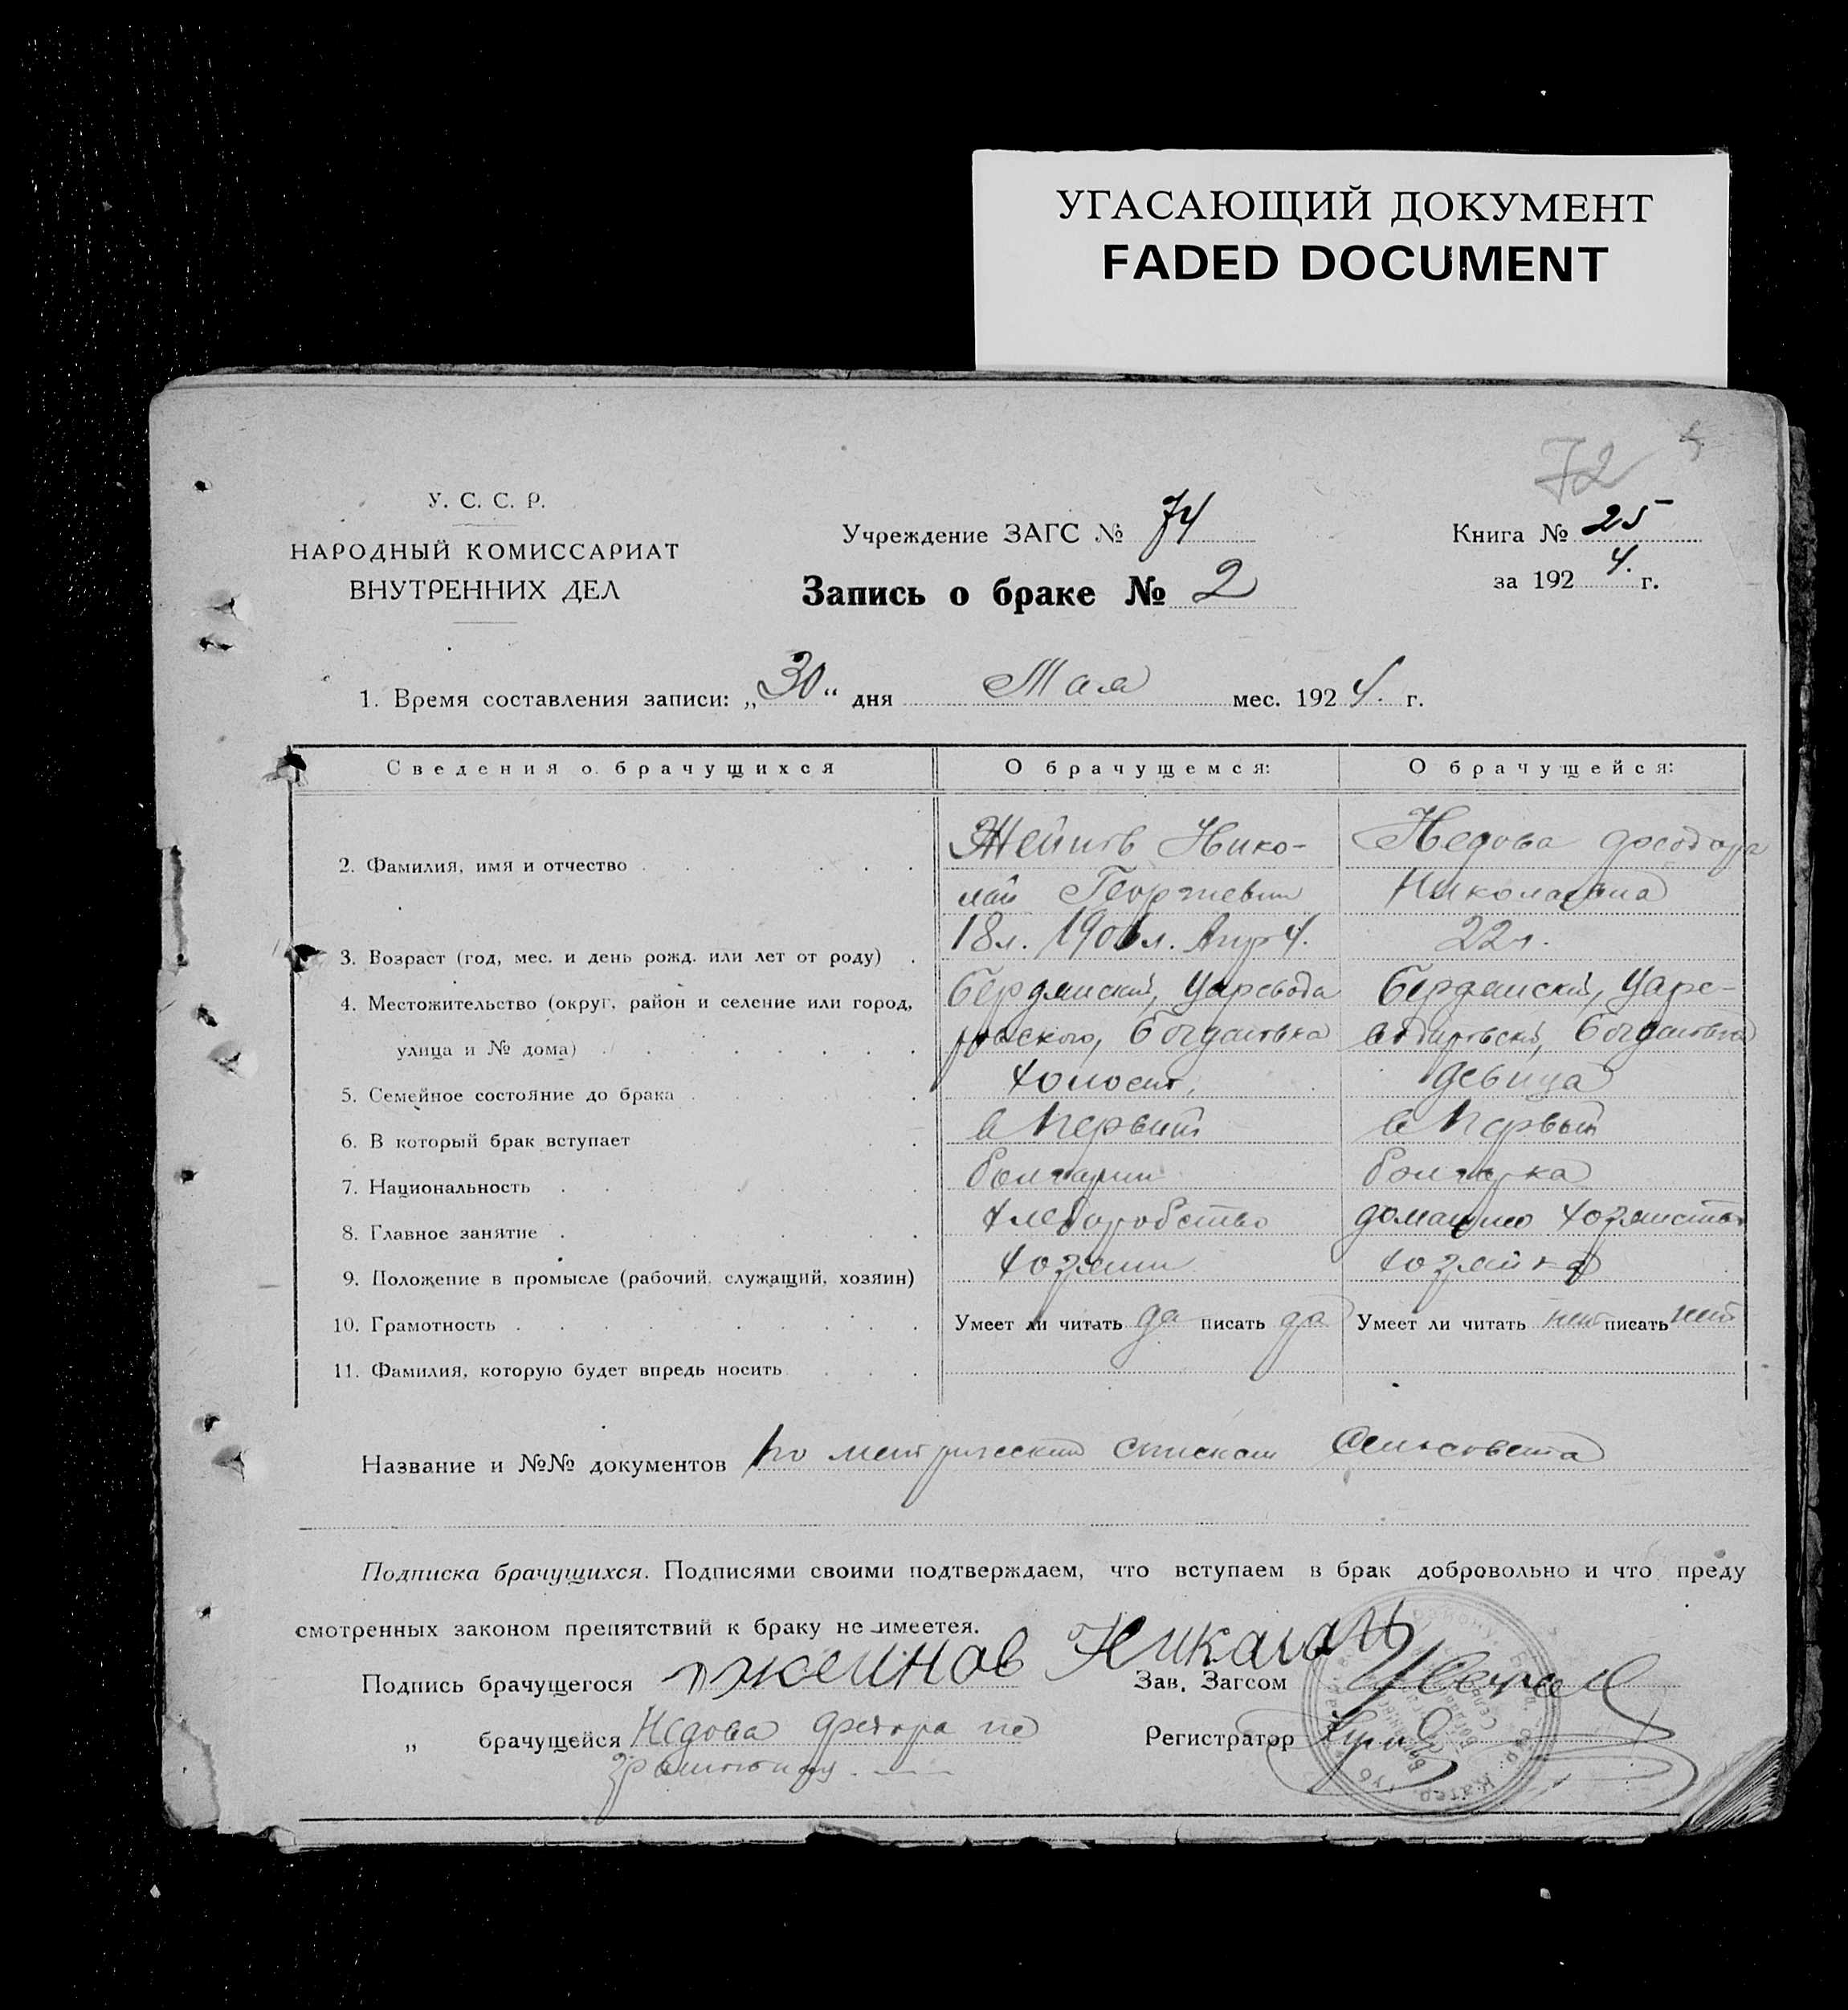 УГАСАЮЩИЙ ДОКУМЕНТ
FADED DOCUMENT
72
У. С. С. Р.
НАРОДНЫЙ КОМИССАРИАТ
ВНУТРЕННИХ ДЕЛ
Учреждение ЗАГС № 74
Запись о браке № 2
Книга № 25
за 192 4. г.
1. Время составления записи: „ 30 “ дня Мая мес. 192 4. г.
Сведения о брачущихся
О брачущемся:
О брачущейся:
2. Фамилия, имя и отчество
Жейнов Нико-
лай Георгиевич
Недова Феодора
Николаевна
3. Возраст (год, мес. и день рожд. или лет от роду)
18 л. 1906 л. Апр 4.
22 л.
4. Местожительство (округ, район и селение или город,
улица и № дома)
Бердянский, Царевода
ровского, Богдановка
Бердянский, Царе-
водаровский, Богдановка
5. Семейное состояние до брака
холост,
девица
6. В который брак вступает
в Первый
в Первый
7. Национальность
болгарин
болгарка
8. Главное занятие
хлеборобство
домашнее хозяйство
9. Положение в промысле (рабочий, служащий, хозяин)
хозяин
хозяйка
10. Грамотность
Умеет ли читать да писать да
Умеет ли читать нет писать нет
11. Фамилия, которую будет впредь носить
Название и №№ документов по метрическим спискам Сельсовета
Подписка брачущихся. Подписями своими подтверждаем, что вступаем в брак добровольно и что преду
смотренных законом препятствий к браку не имеется.
Подпись брачущегося жеинов Николаи
Зав. Загсом
„ брачущейся Недова Федора не
грамотная
Регистратор